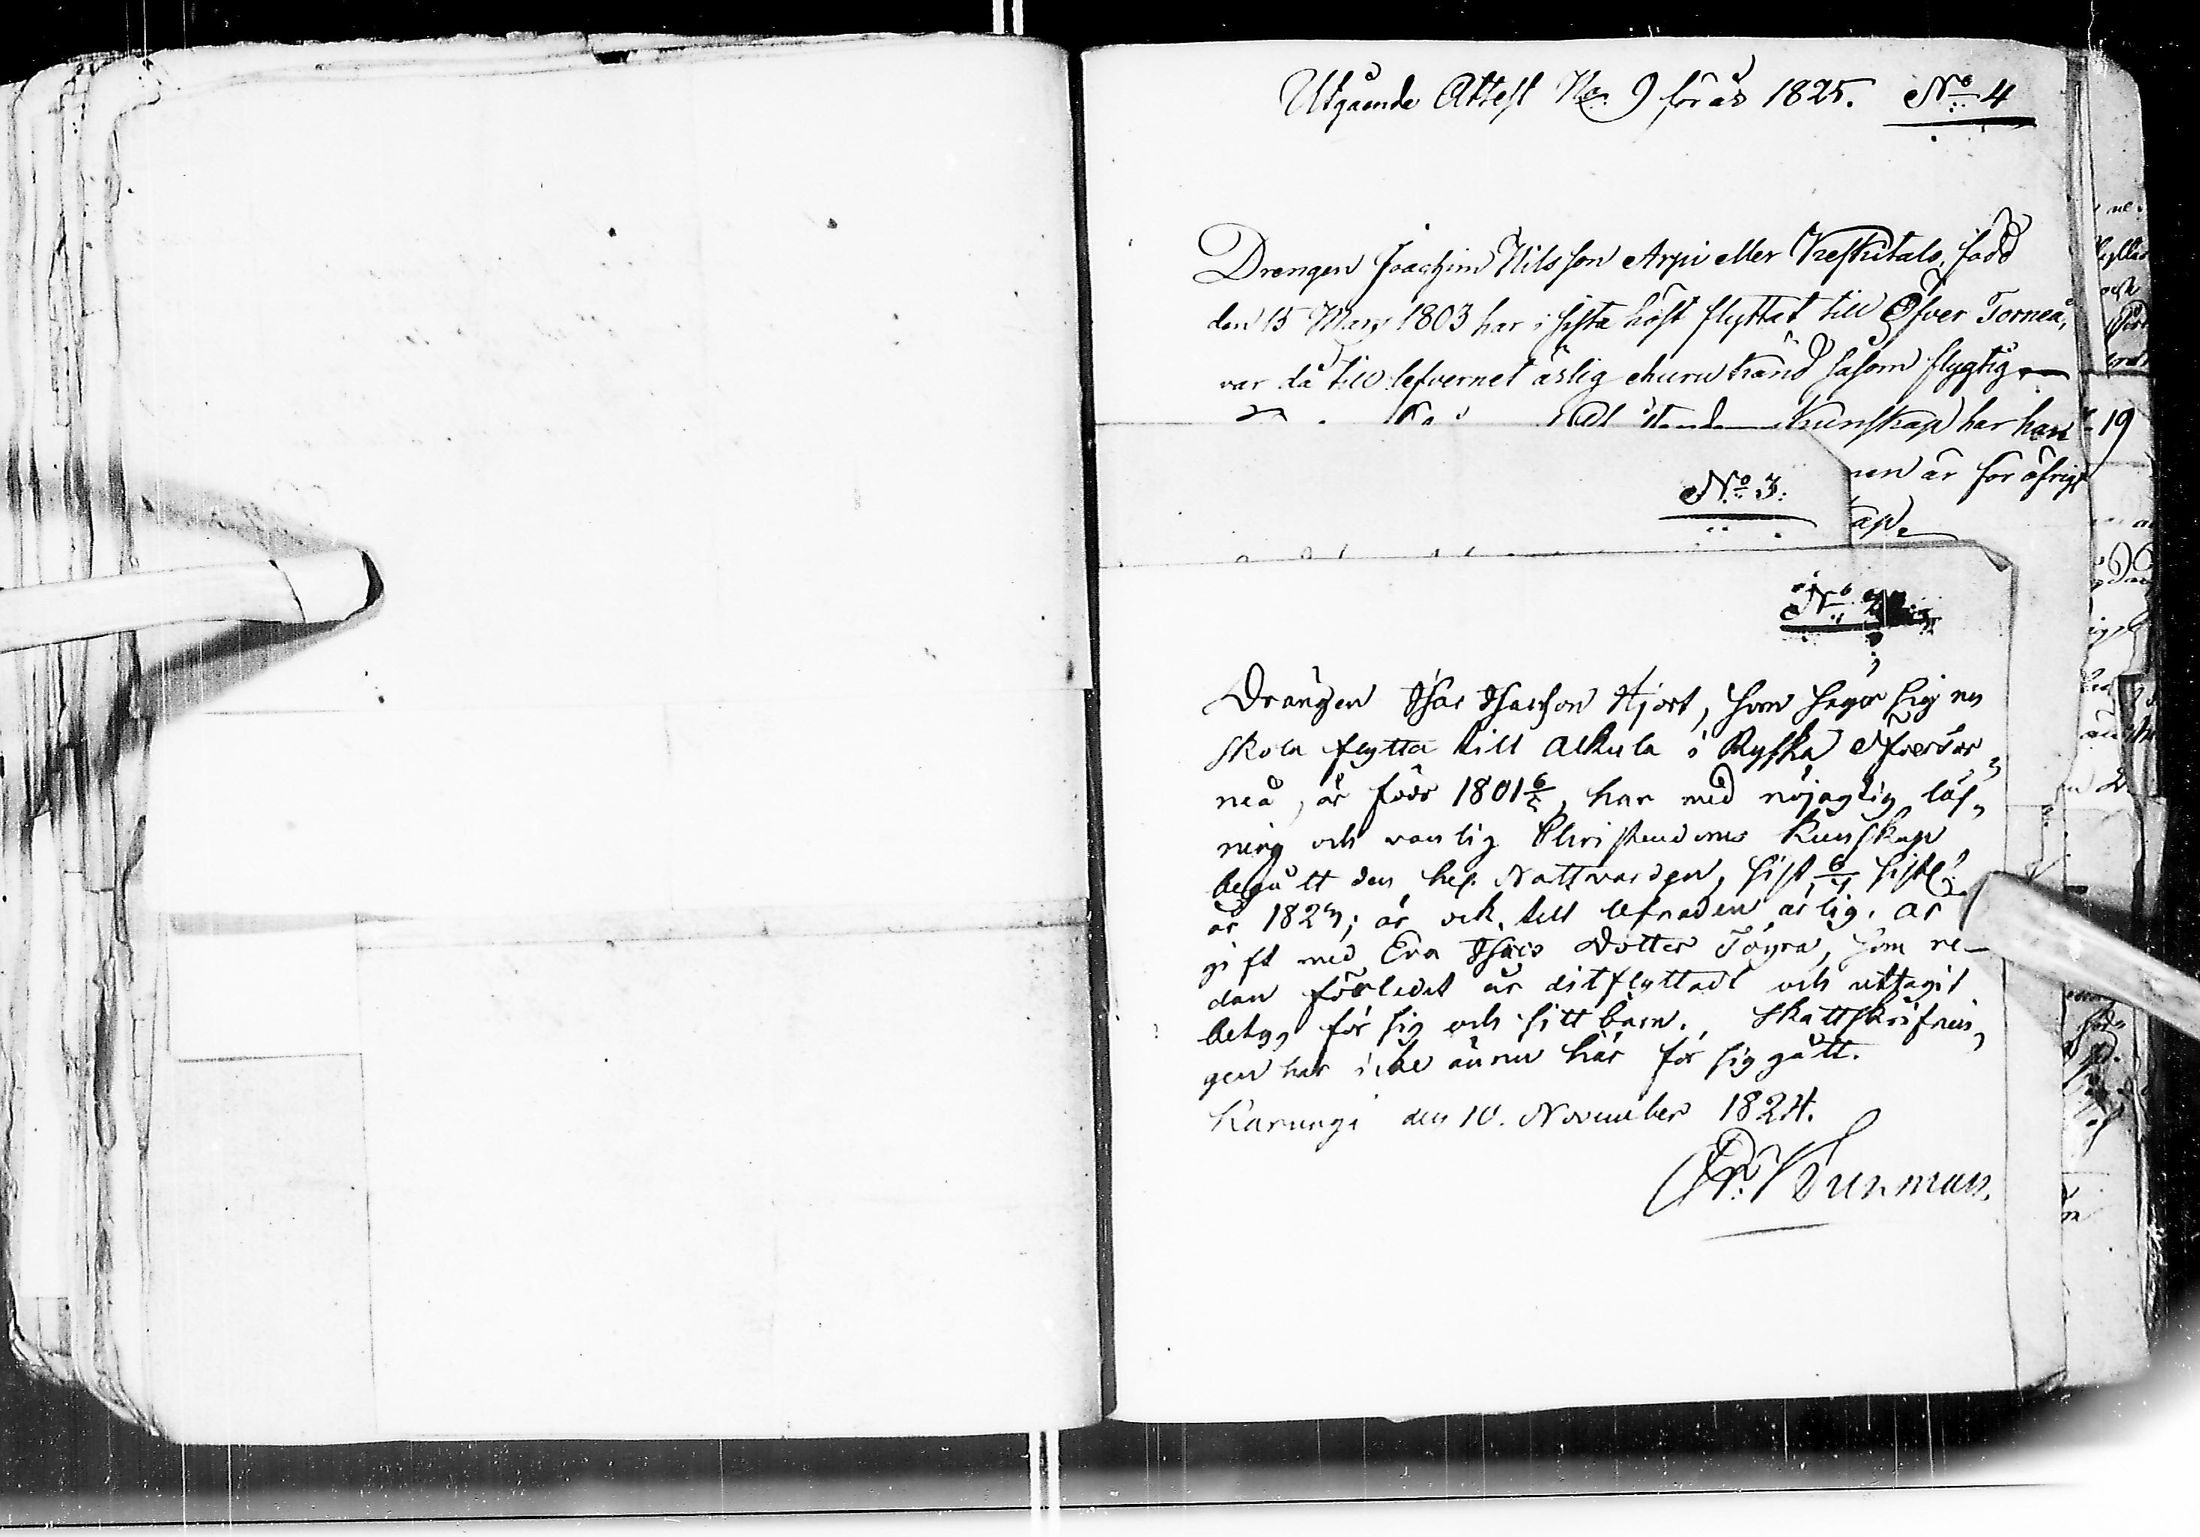 Utgående Attest No. 9 för år 1825. No 4
Drengen Joachim Nilsson Arpi eller Keskitalo, född
den 15 Mars 1803 har i sista höst flyttat till Öfver Torneå,
var då till lefvernet ärlig ehuru känd såsom flygtig
kunskap har han
19
nen är för öfrigt
No 3.
ap.
No
Drängen Isac Isacsson Hjort, som säger sig nu
skola flytta till Alkula i Ryska Öfvertor-
neå, är född 1801 6/5, har med nöjagtig läs-
ning och vanlig Christendoms Kunskap
begått den hel. Nattvarden, sist 6/4 sistl.
år 1824; är ock till lefnaden ärlig. Är
gift med Eva Isacs Dotter Töyrä, som re-
dan förledet år ditflyttadt och uttagit
betyg för sig och sitt barn. Skattskrifnin-
gen har icke ännu här för sig gått.
Karungi den 10. November 1824.
Wunman.